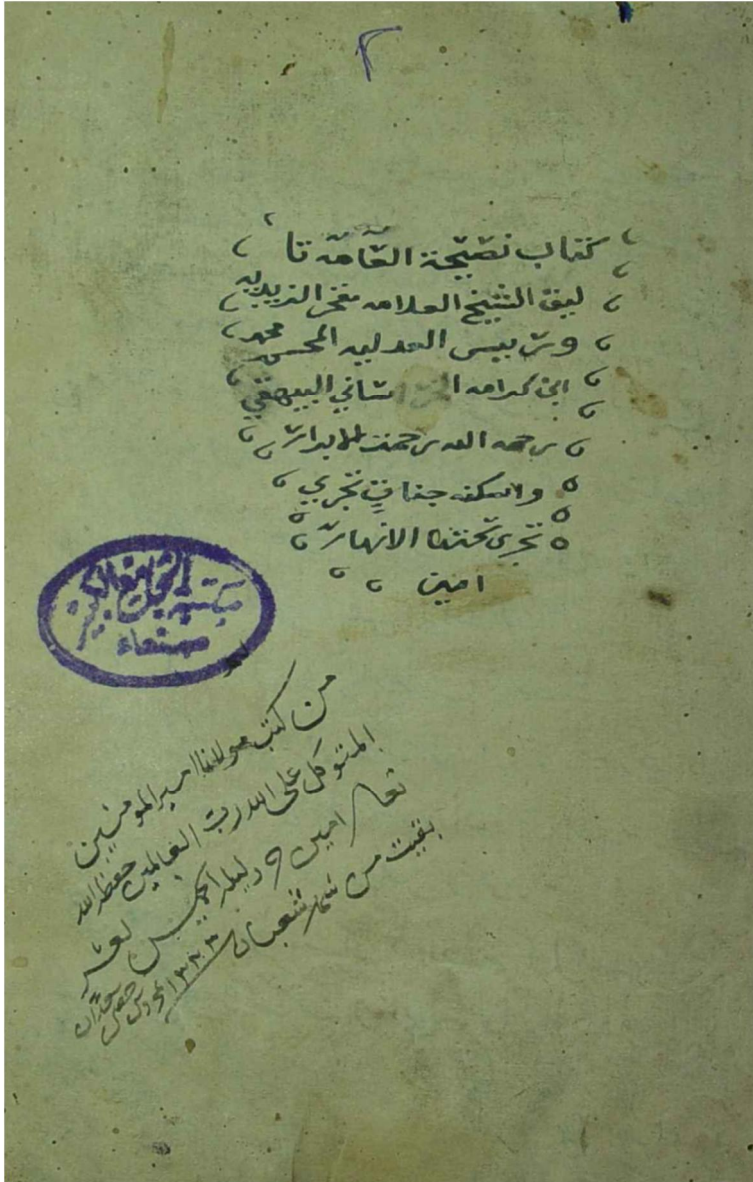 ٢
كتاب نصيحة العامه تا
ليف الشيخ العلامه مفخر الزيديه
ورييس العدليه المحسن محمد
ابن كرامه شاني البيهقي
رحمه الله رحمت للابرار
واسكنه جنات تجري
تجري تحتها الانهار
امين
مكتبة الجامع الكبير
صنعاء
من كتب مولانا امير المومنين
المتوكل على الله رب العالمين حفظه الله
تعا امين وليلة الخميس لعشر
بقيت من شهر شعبان ١٣٣٣